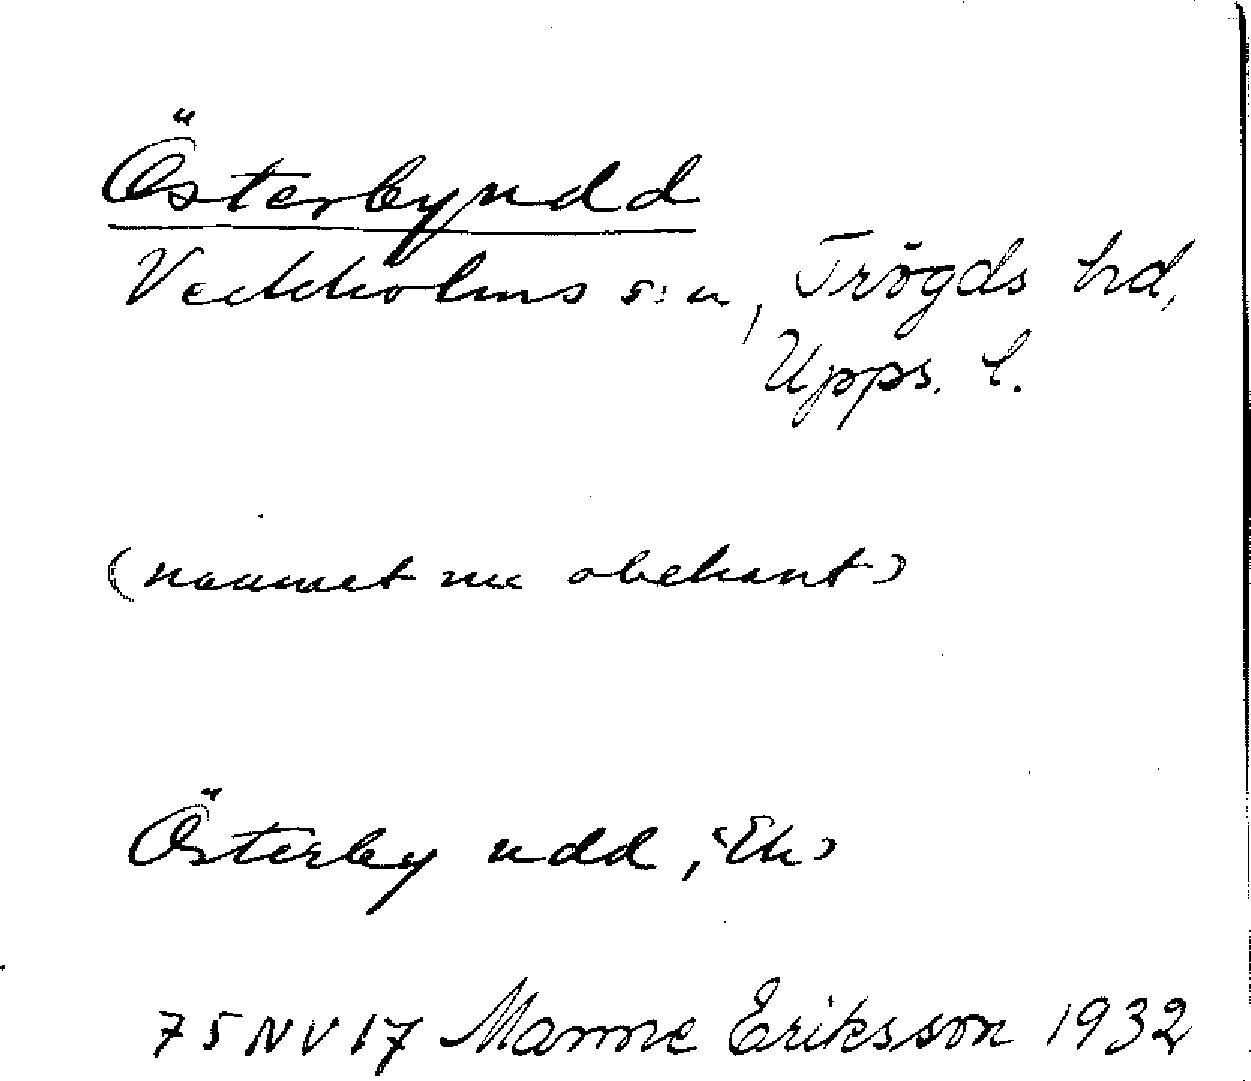 Österbyudd
Veckholms s:n, Trögds hd,
Upps. l.
(namnet nu obekant)
Österby udd, (Ek)
75 NV 17 Manne Eriksson 1932